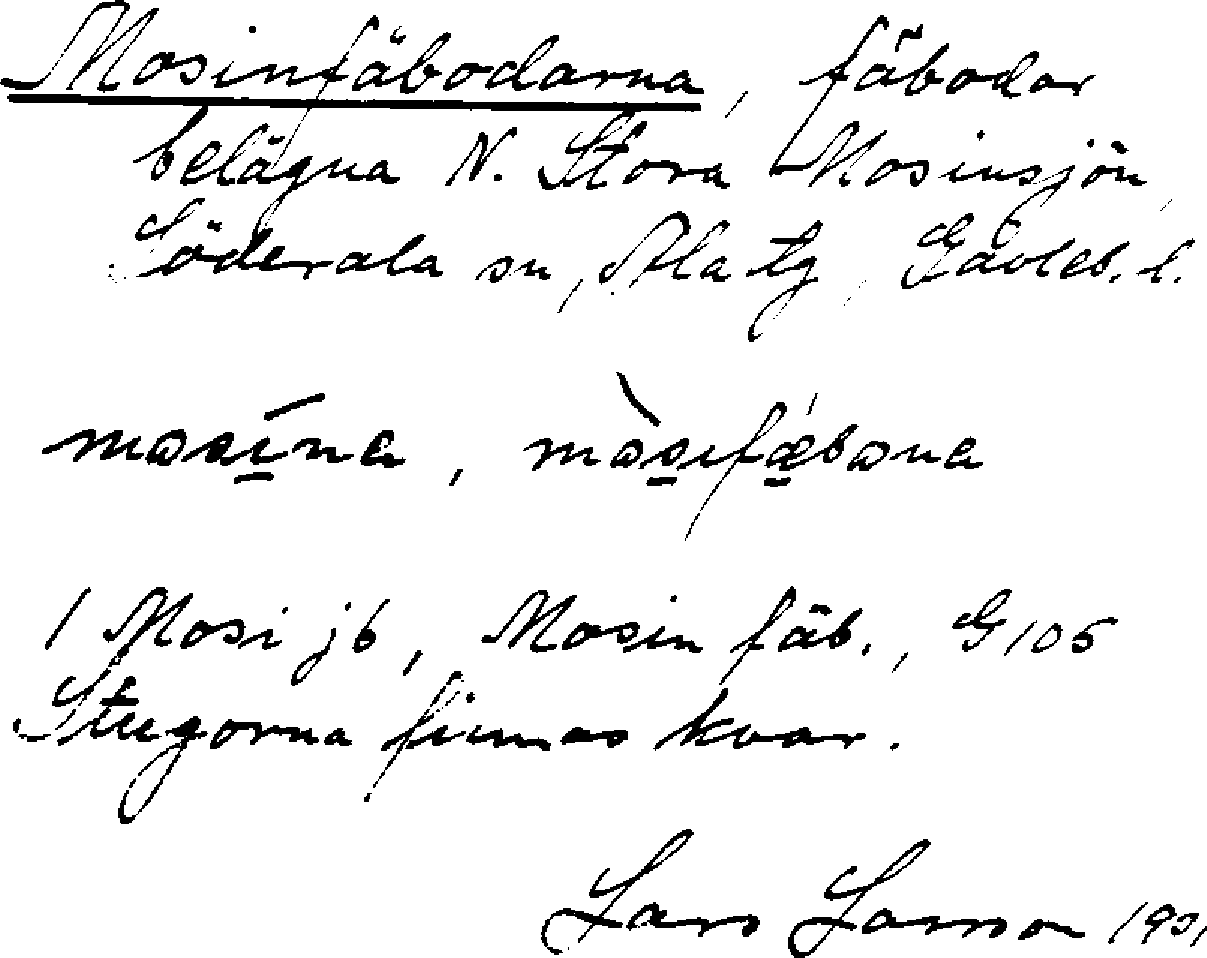 Mosinfäbodarna, fäbodar
belägna N. Stora Mosinsjön,
Söderala sn, Ala tg, Gävleb. l.
mosína, mòsifǽbona
1 Mosi jb, Mosin fäb., G 105
Stugorna finnas kvar.
Lars Larsson